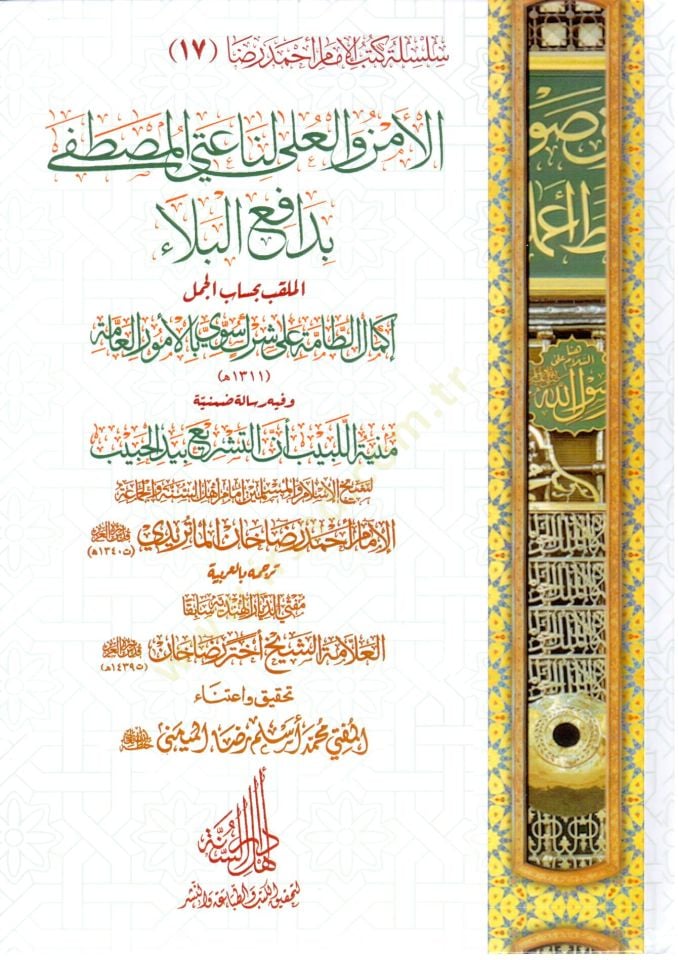 سلسلة كتب الإمام أحمد رضا (١٧)
الأمن والعلى لناعتي المصطفى
بدافع البلاء
الملقب بحساب الجمل
إكمال الطامة على شرك سوي بالأمور العامة
(١٣١١ھ)
وفيه رسالة ضمنية
منية اللبيب أنّ التشريع بيد الحبيب
لشيخ الإسلام والمسلمين إمام أهل السنة والجماعة
الإمام أحمد رضا خان الماتريدي قدس سره العزيز (ت١٣٤٠ھ)
ترجمه بالعربية
مفتي الديار الهندية سابقا
العلامة الشيخ أختر رضا خان قدس سره العزيز (ت١٤٣٩ھ)
تحقيق واعتناء
المفتي محمد أسلم رضا الميمني حفظه الله
دار أهل السنة
لتحقيق الكتب والطباعة والنشر
هنا
السلام على
رسول الله
www. .com.tr